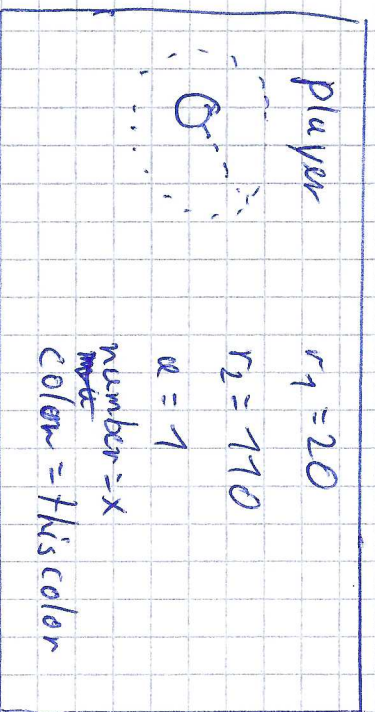 player
r₁ = 20
r₂ = 110
a = 1
number = x
color = this color